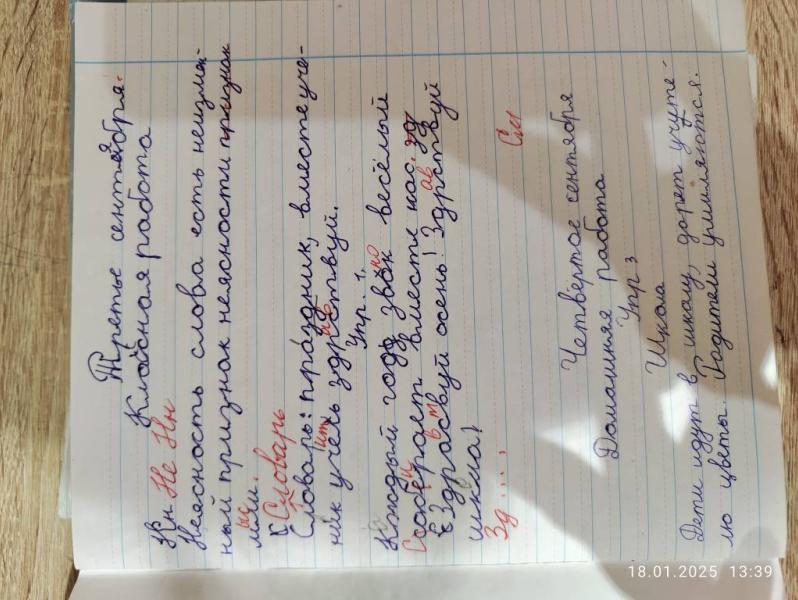 Третье сентября.
Классная работа
Нн Не Нн
Неясность слова есть неизмен-
ный признак неясности признак
мысли.
Словарь
Словарь: праздник, вместе уче-
ник учень здрствуй.
Упр. 1.
Каждый год звок весёлый
Сооберает вместе нас.
Здраствуй осень! Здрствуй
школа!
Зд....
См
Четвёртое сентября
Домашняя работа
Упр 3
Школа
Дети идут в школу, дарет учуте-
лю цветы. Родители умиляются.
18.01.2025 13:39